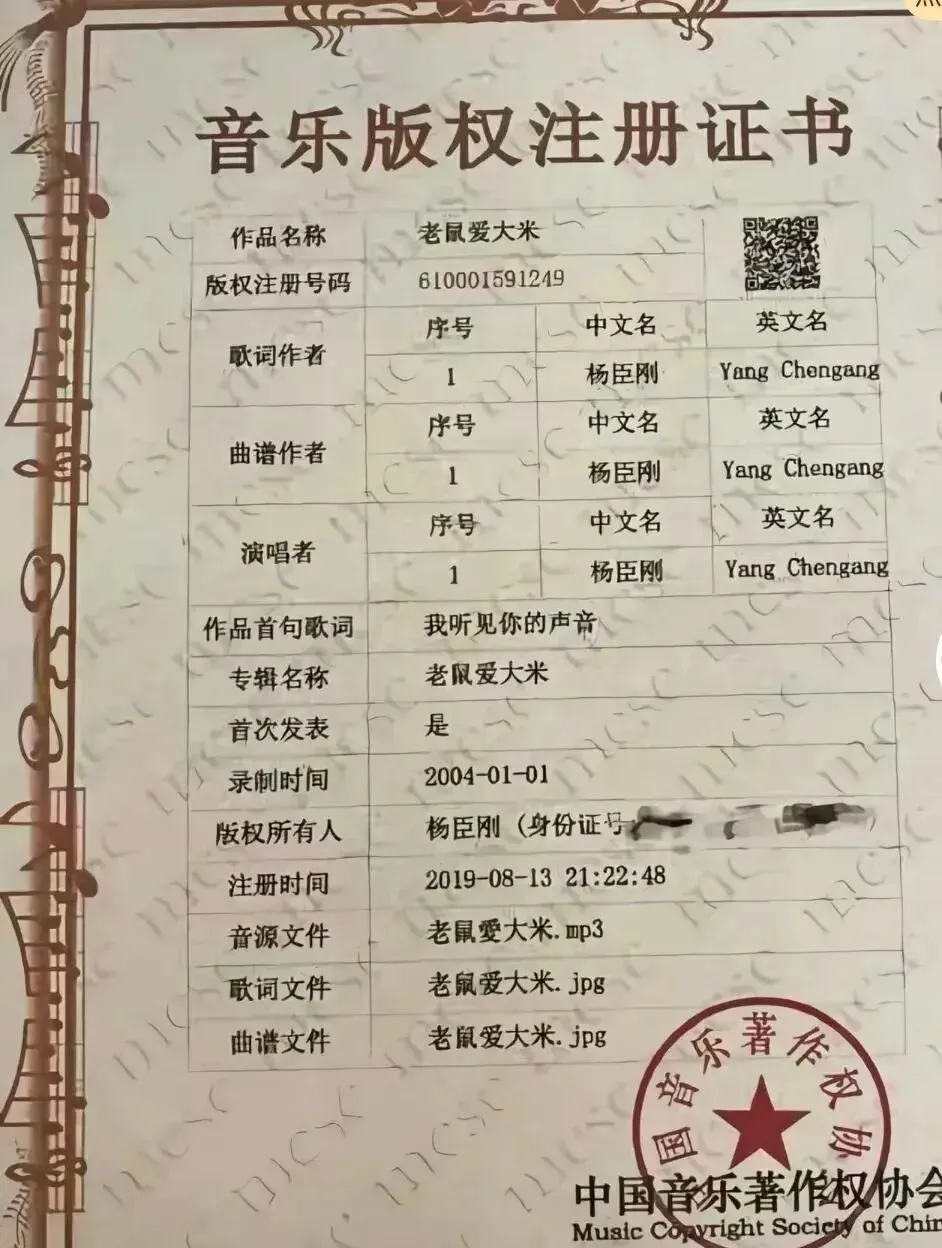 音乐版权注册证书
作品名称 老鼠爱大米
版权注册号码 610001591249
歌词作者 序号 中文名 英文名
1 杨臣刚 Yang Chengang
曲谱作者 序号 中文名 英文名
1 杨臣刚 Yang Chengang
演唱者 序号 中文名 英文名
1 杨臣刚 Yang Chengang
作品首句歌词 我听见你的声音
专辑名称 老鼠爱大米
首次发表 是
录制时间 2004-01-01
版权所有人 杨臣刚 (身份证号
注册时间 2019-08-13 21:22:48
音源文件 老鼠愛大米.mp3
歌词文件 老鼠爱大米.jpg
曲谱文件 老鼠爱大米.jpg
国音乐著作权协
中国音乐著作权协会
Music Copyright Society of Chin
mcsc